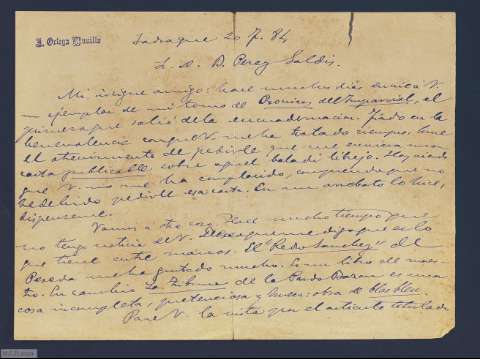 J. Ortega Munilla
Jadraque 20 7. 84
S. D. B. Perez Galdós.
Mi insigne amigo: hace muchos dias envié á V
ejemplar de mi tomo de Cronicas del Imparcial, el
primero que salió de la encuadernacion. Fiado en la
benevolencia con que V. me ha tratado siempre, tuve
el atrevimiento de pedirle que me enviara una
carta publicable sobre aquel baladí librejo. Hoy viendo
que V. no me ha complacido, comprendo que no
he debido pedirle esa carta. En un arrebato lo hice,
dispénseme.
Vamos á otra cosa. Hace mucho tiempo que
no tengo noticia de V. que me diga que es lo
que tiene entre manos. El "Pedro Sanchez" de
Pereda me ha gustado mucho. Es un libro de maes-
tro. En cambio La Tribuna de la Pardo Bazan es una
cosa incompleta, pretenciosa y obra de
Pase V. la vista por el articulo titulado